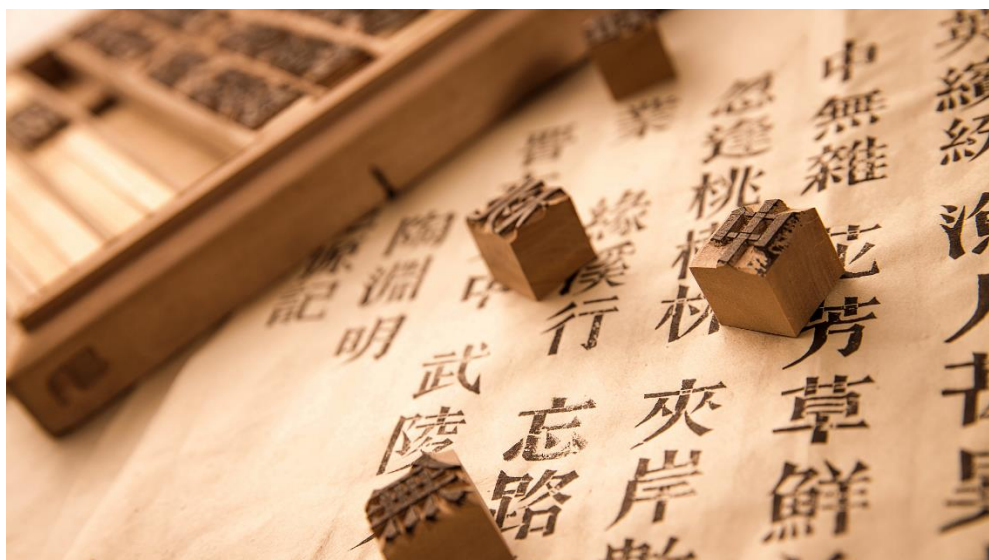 源記
陶淵明
晉中武陵
業緣溪行忘路
忽逢桃林夾岸數
中無雜花芳草鮮
英繽紛漁人甚異